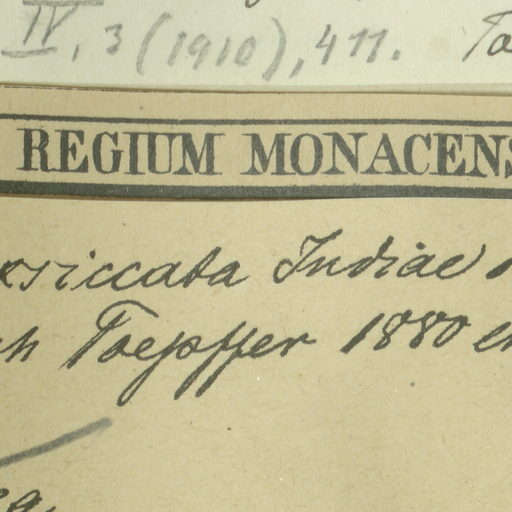 IV, 3 (1910), 477. To
REGIUM MONACENS
xsiccata Indiae
ch Toepffer 1880 e